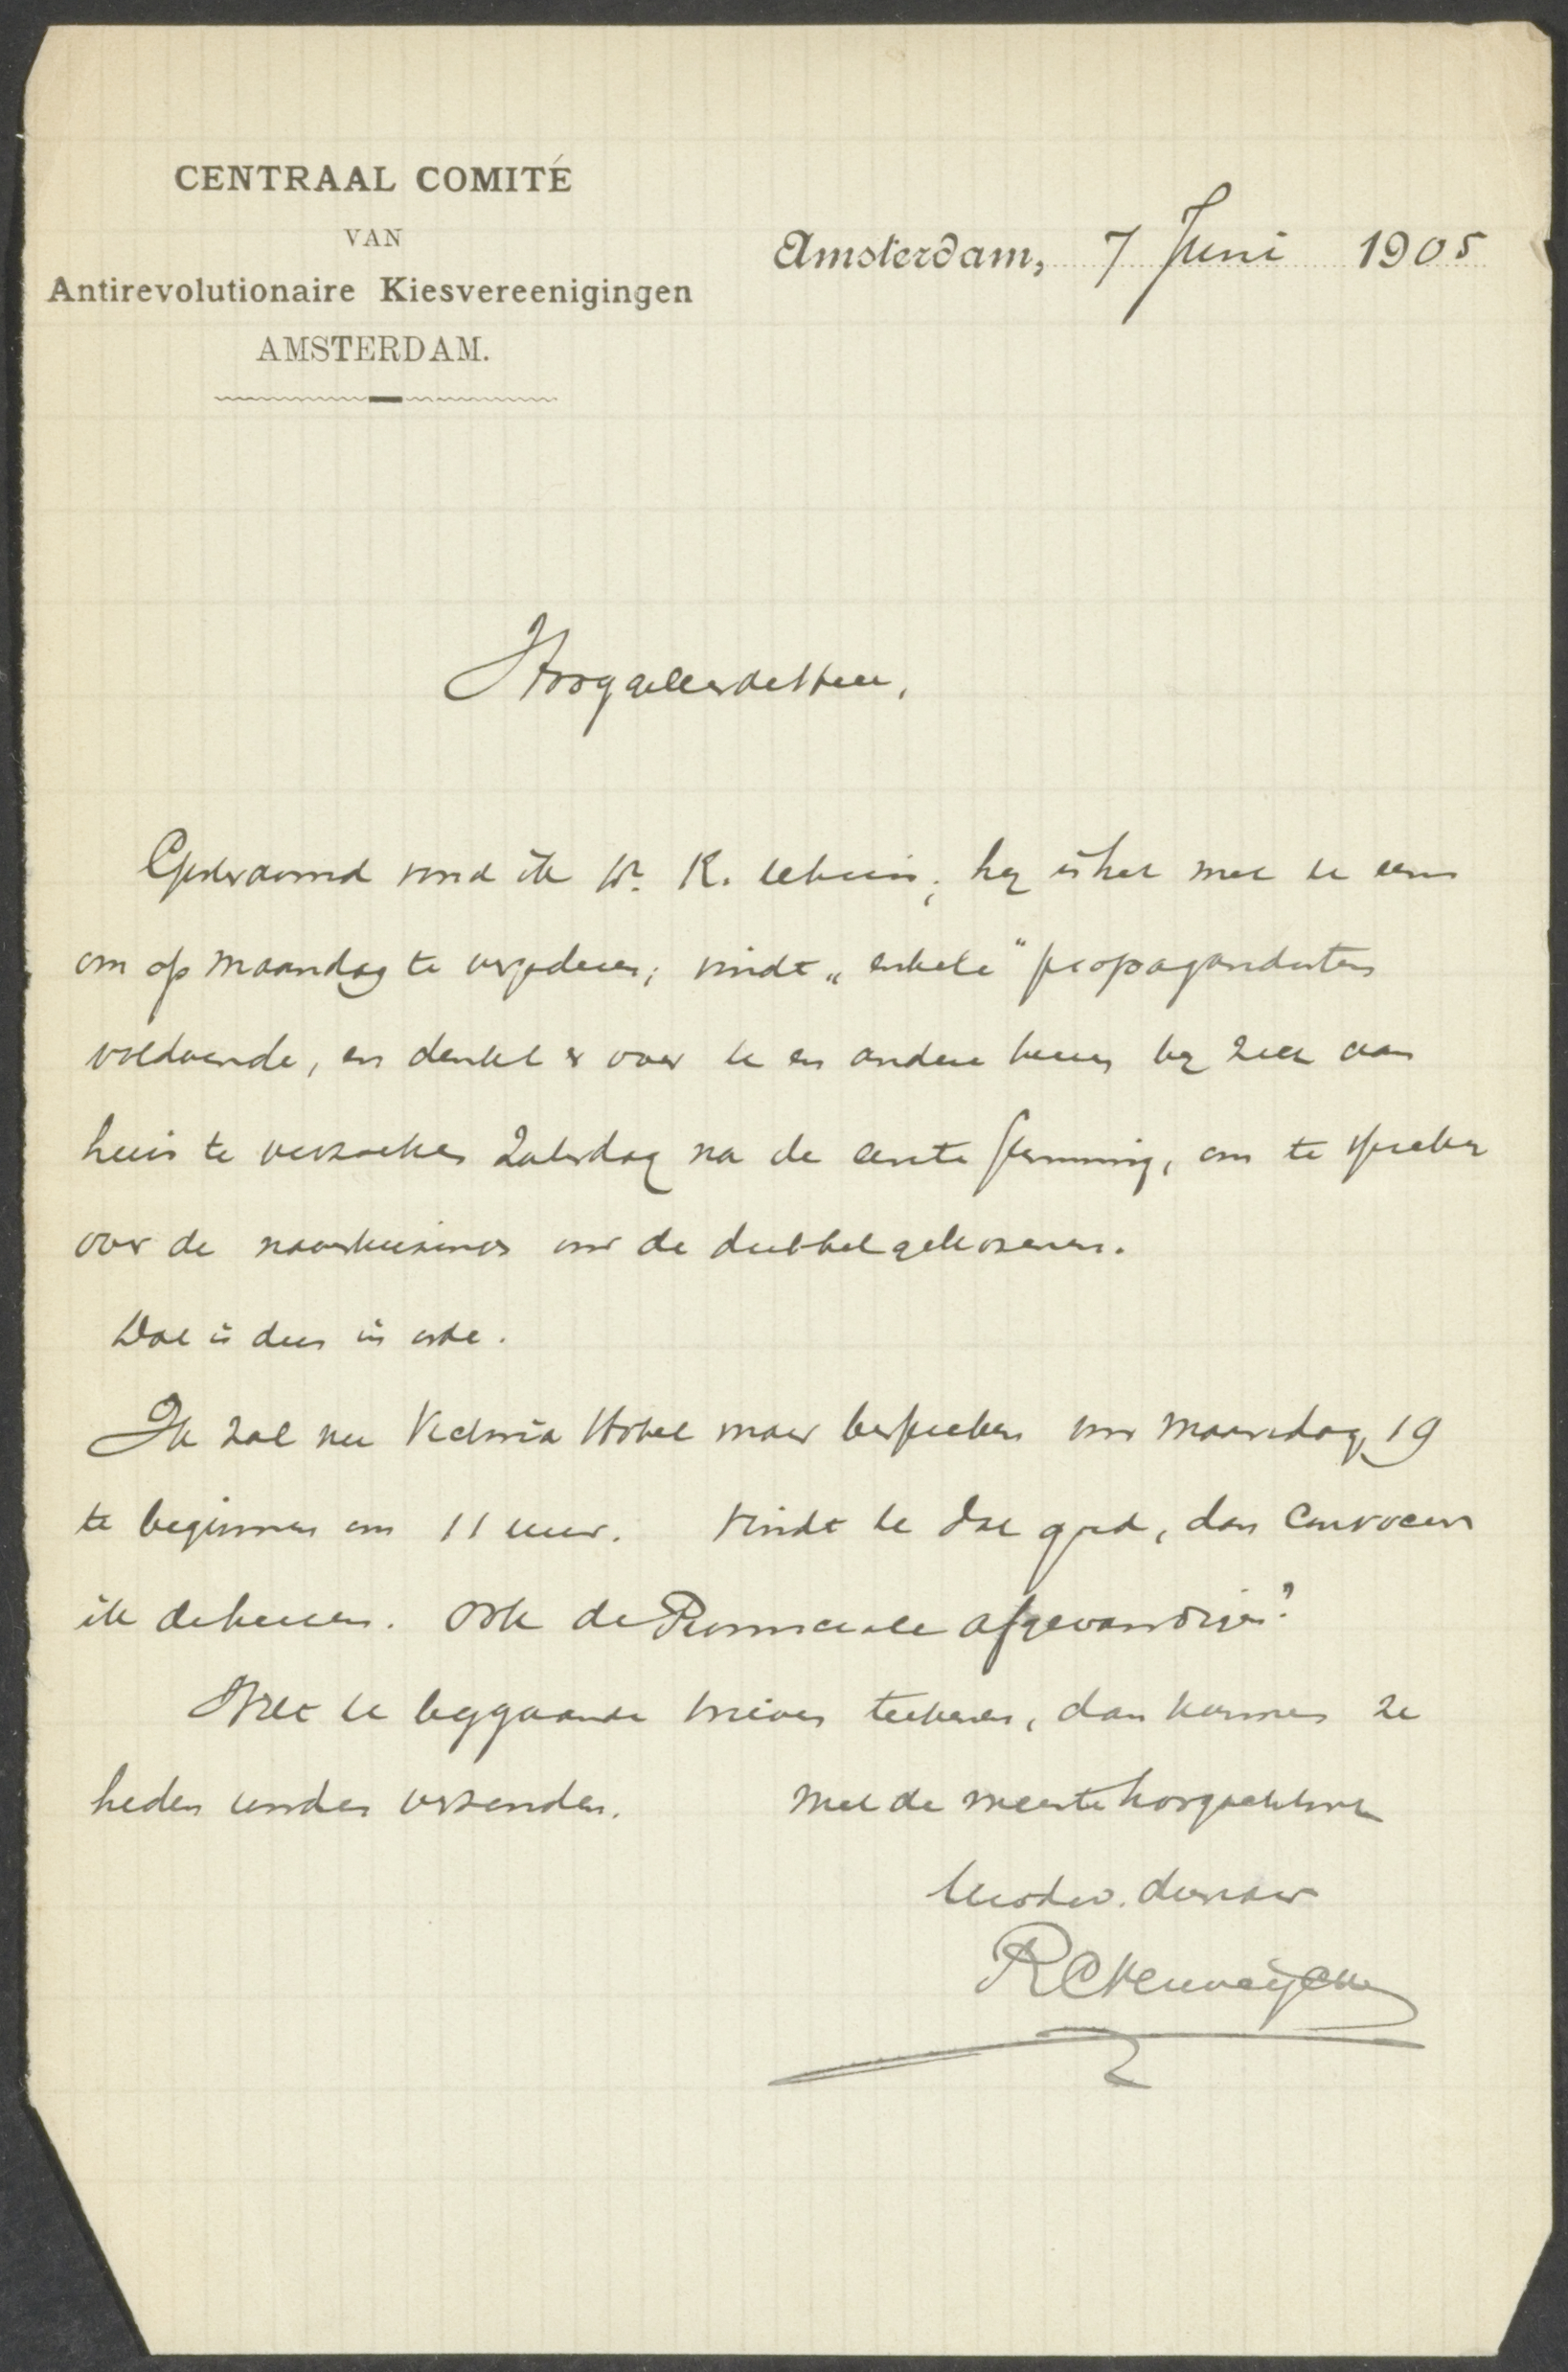 CENTRAAL COMITÉ
VAN
Antirevolutionaire Kiesvereenigingen
AMSTERDAM.
Amsterdam, 7 Juni 1905
Hooggeleerde Heer,
Gisteravond vond ik Dr. K. tehuis; hij is het met u eens
om op Maandag te vergaderen; vindt „enkele" propagandisten
voldoende, en denkt er over u en andere heeren bij zich aan
huis te verzoeken Zaterdag na de eerste stemming, om te spreken
over de naverkiezingen voor de dubbelgekozenen.
Dat is dus in orde.
Ik zal nu Victoria Hotel maar bespreken voor Maandag 19
te beginnen om 11 uur. Vindt u dat goed, dan convoceer
ik de heeren. Ook de Provinciale afgevaardigden?
Wilt u bijgaande brieven teekenen, dan kunnen ze
heden worden verzonden. Met de meeste hoogachting
Uw dw. dienaar
R C Verweyck